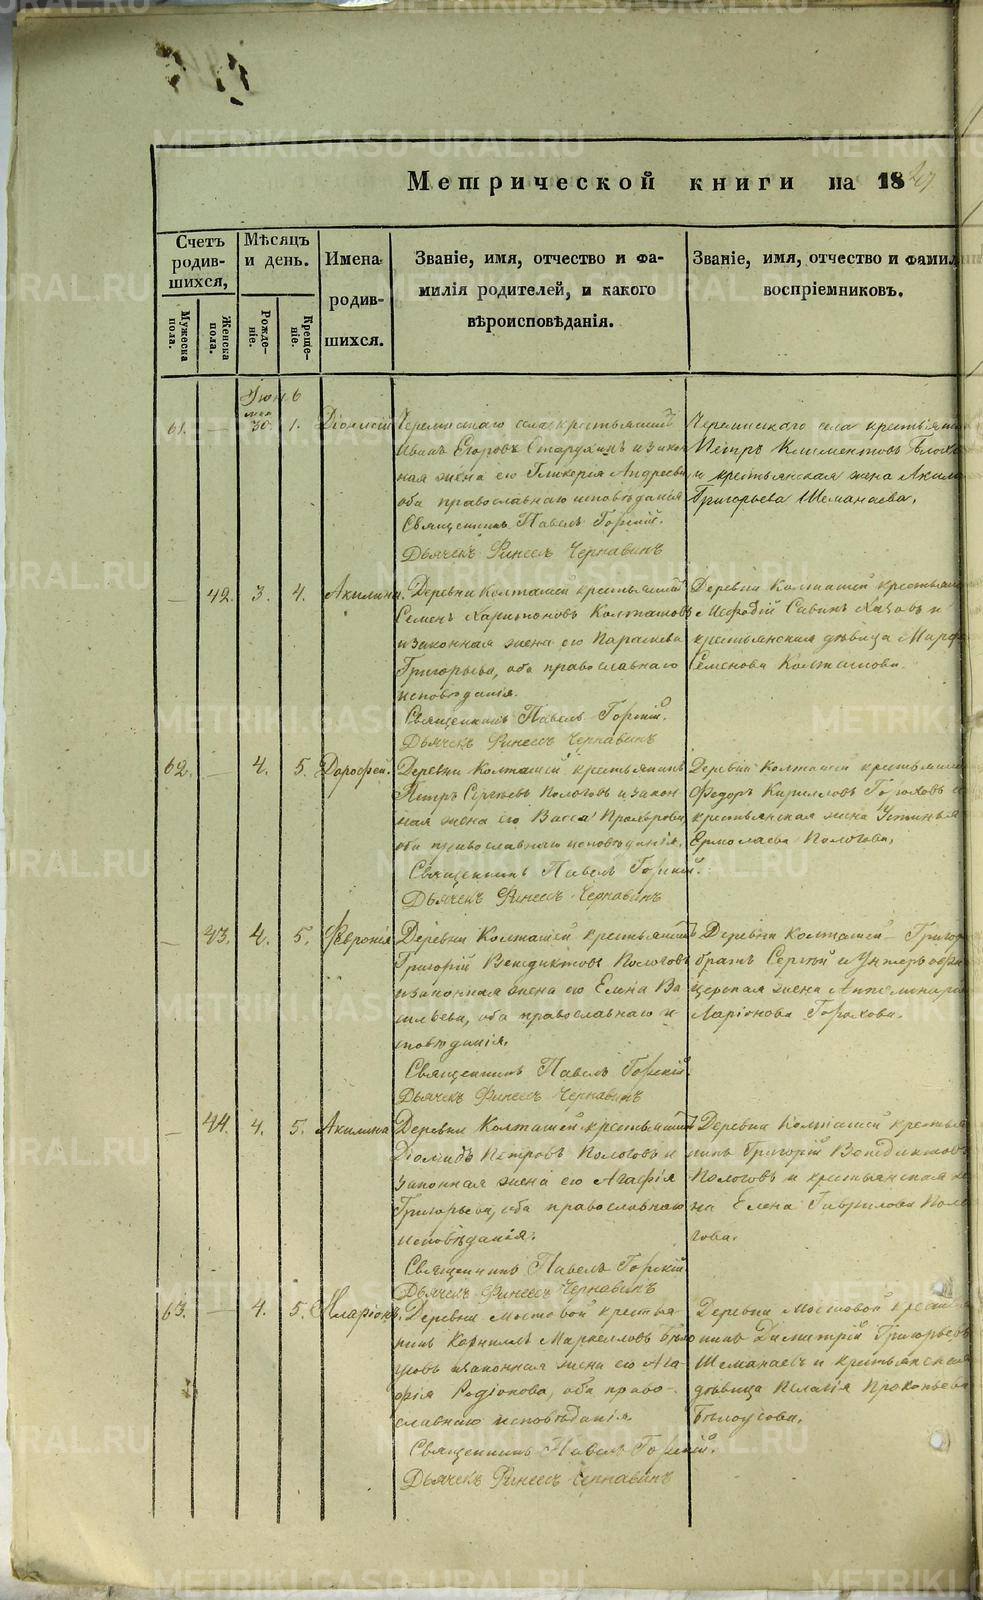 Метрической книги на 18
Счетъ родив-шихся,
Мужеска пола.
Женска пола.
Мѣсяцъ и день.
Рожде-ніе.
Креще-ніе.
Имена родив-шихся.
Званіе, имя, отчество и фа-
милія родителей, и какого
вѣроисповѣданія.
Званіе, имя, отчество и фамил
воспріемниковъ.
61. — 30. 1. Діонисій
Иванъ Егоровъ Старухинъ и закон
ная жена его Гликерія Андреева
оба православнаго исповѣданія
Священникъ Павелъ Горскій.
Дьячекъ Финеесъ Чернавинъ
села крестьянинъ
Петръ Климентовъ
и крестьянская жена
Григорьева Шеманаева.
— 42. 3. 4. Акилина. Деревни Колташей крестьянинъ
Семенъ Харитоновъ Колташовъ
и законная жена его Параскева
Григорьева, оба православнаго
исповѣданія.
Священникъ Павелъ Горскій.
Дьячекъ Финеесъ Чернавинъ
Деревни Колташей крестьян
Меѳодій Савинъ и
крестьянская дѣвица Марѳа
Семенова Колташова.
62. — 4. 5. Дороѳей. Деревни Колташей крестьянинъ
Петръ Сергѣевъ Пологовъ и закон
ная жена его Васса Прохорова
оба православнаго исповѣданія.
Священникъ Павелъ Горскій.
Дьячекъ Финеесъ Чернавинъ
Деревни Колташей крестьянинъ
Федоръ Кириловъ Гороховъ и
крестьянская жена Устинья
Ермолаева Пологова.
— 43. 4. 5. Февронія Деревни Колташей крестьянинъ
Григорій Венедиктовъ Пологовъ
и законная жена его Елена Ва
сильева, оба православнаго и
сповѣданія.
Священникъ Павелъ Горскій.
Дьячекъ Финеесъ Чернавинъ
Деревни Колташей Григор
братъ Сергѣй и Унтеръ офи
церская жена Апполинарія
Ларіонова Горохова.
— 44. 4. 5. Акилина Деревни Колташей крестьянинъ
Діомидъ Петровъ Пологовъ и
законная жена его Агафія
Григорьева, оба православнаго
исповѣданія.
Священникъ Павелъ Горскій
Дьячекъ Финеесъ Чернавинъ
Деревни Колташей крестья
нинъ Григорій Венедиктовъ
Пологовъ и крестьянская же
на Елена Гаврилова Поло
гова.
63. — 4. 5. Иларіонъ. Деревни Мостовой крестья-
нинъ Корнилъ Маркелловъ Бѣло
усовъ и законная жена его Ага
фія Родіонова, оба право-
славнаго исповѣданія
Священникъ Павелъ Горскій.
Дьячекъ Финеесъ Чернавинъ
Деревни Мостовой крестья
нинъ Димитрій Григорьевъ
Шеманаевъ и крестьянская
дѣвица Пелагія Прокопьева
Бѣлоусова.
METRIKI.GASO-URAL.RU